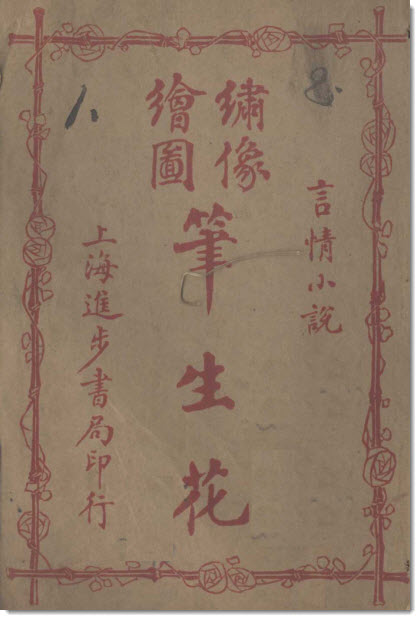 言情小說
繡像
繪圖
筆生花
上海進步書局印行
八